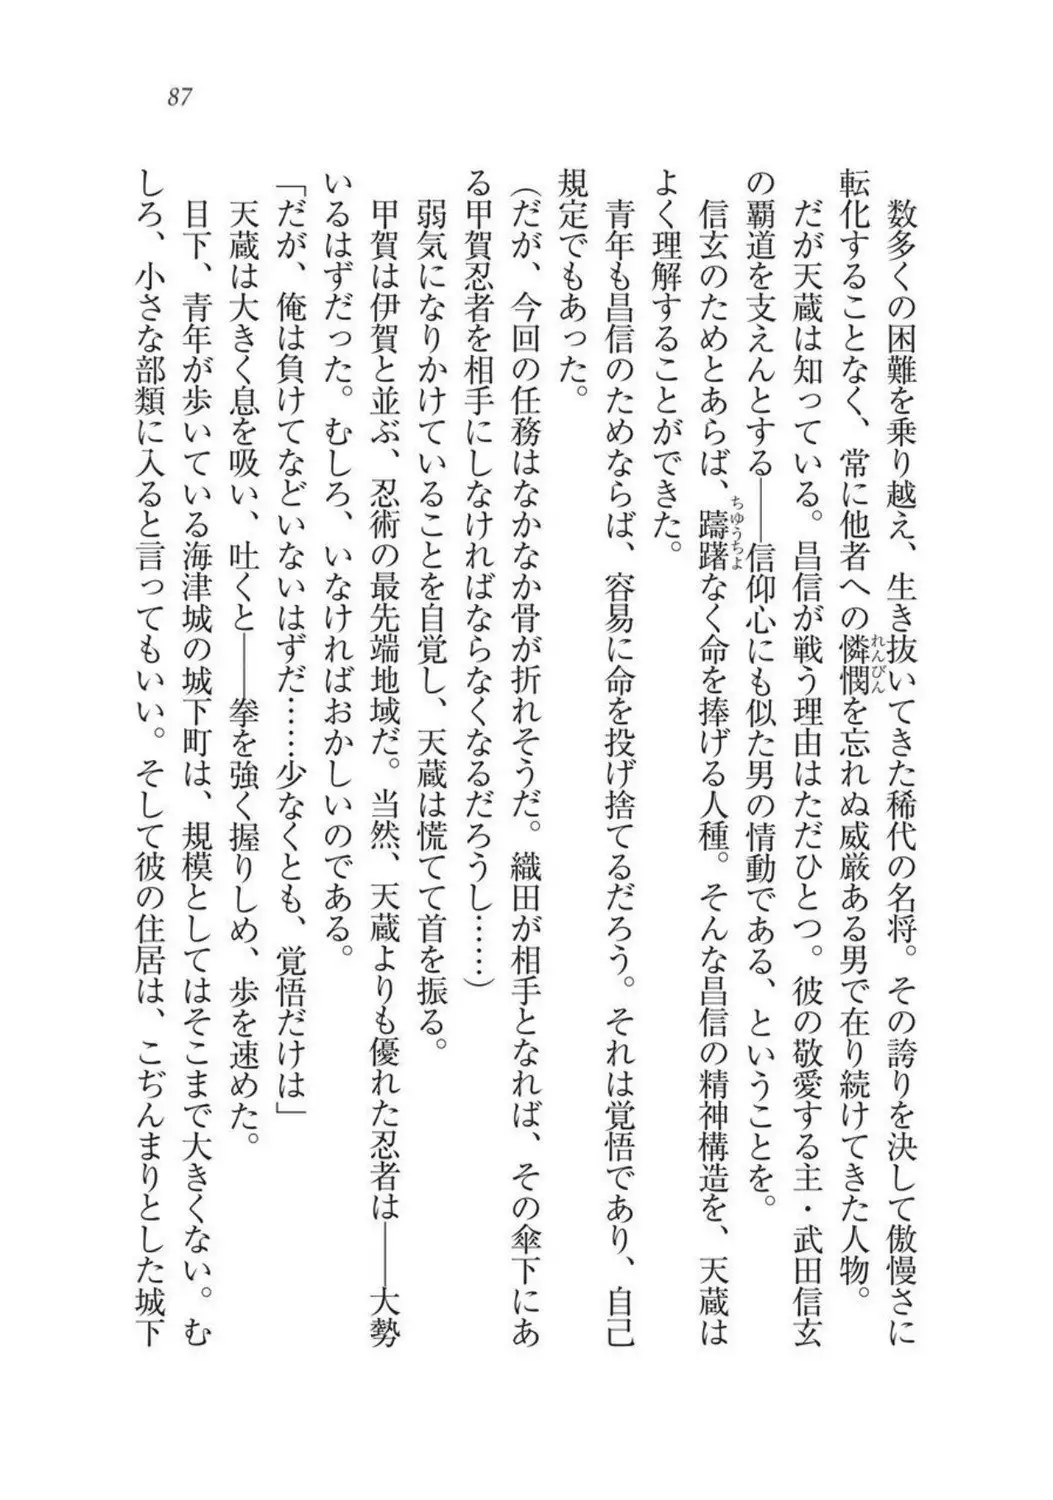 87
　数多くの困難を乗り越え、生き抜いてきた稀代の名将。その誇りを決して傲慢さに
転化することなく、常に他者への憐憫を忘れぬ威厳ある男で在り続けてきた人物。
れんびん
　だが天蔵は知っている。昌信が戦う理由はただひとつ。彼の敬愛する主・武田信玄
の覇道を支えんとする――信仰心にも似た男の情動である、ということを。
　信玄のためとあらば、躊躇なく命を捧げる人種。そんな昌信の精神構造を、天蔵は
ちゆうちよ
よく理解することができた。
　青年も昌信のためならば、容易に命を投げ捨てるだろう。それは覚悟であり、自己
規定でもあった。
（だが、今回の任務はなかなか骨が折れそうだ。織田が相手となれば、その傘下にあ
る甲賀忍者を相手にしなければならなくなるだろうし……）
　弱気になりかけていることを自覚し、天蔵は慌てて首を振る。
　甲賀は伊賀と並ぶ、忍術の最先端地域だ。当然、天蔵よりも優れた忍者は――大勢
いるはずだった。むしろ、いなければおかしいのである。
「だが、俺は負けてなどいないはずだ……少なくとも、覚悟だけは」
　天蔵は大きく息を吸い、吐くと――拳を強く握りしめ、歩を速めた。
　目下、青年が歩いている海津城の城下町は、規模としてはそこまで大きくない。む
しろ、小さな部類に入ると言ってもいい。そして彼の住居は、こぢんまりとした城下